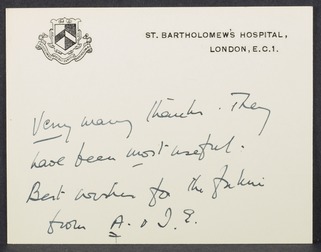 ST. BARTHOLOMEW'S HOSPITAL,
LONDON, E.C.1.
Very many thanks. They
have been most useful.
Best wishes for the future
from A. & J. E.